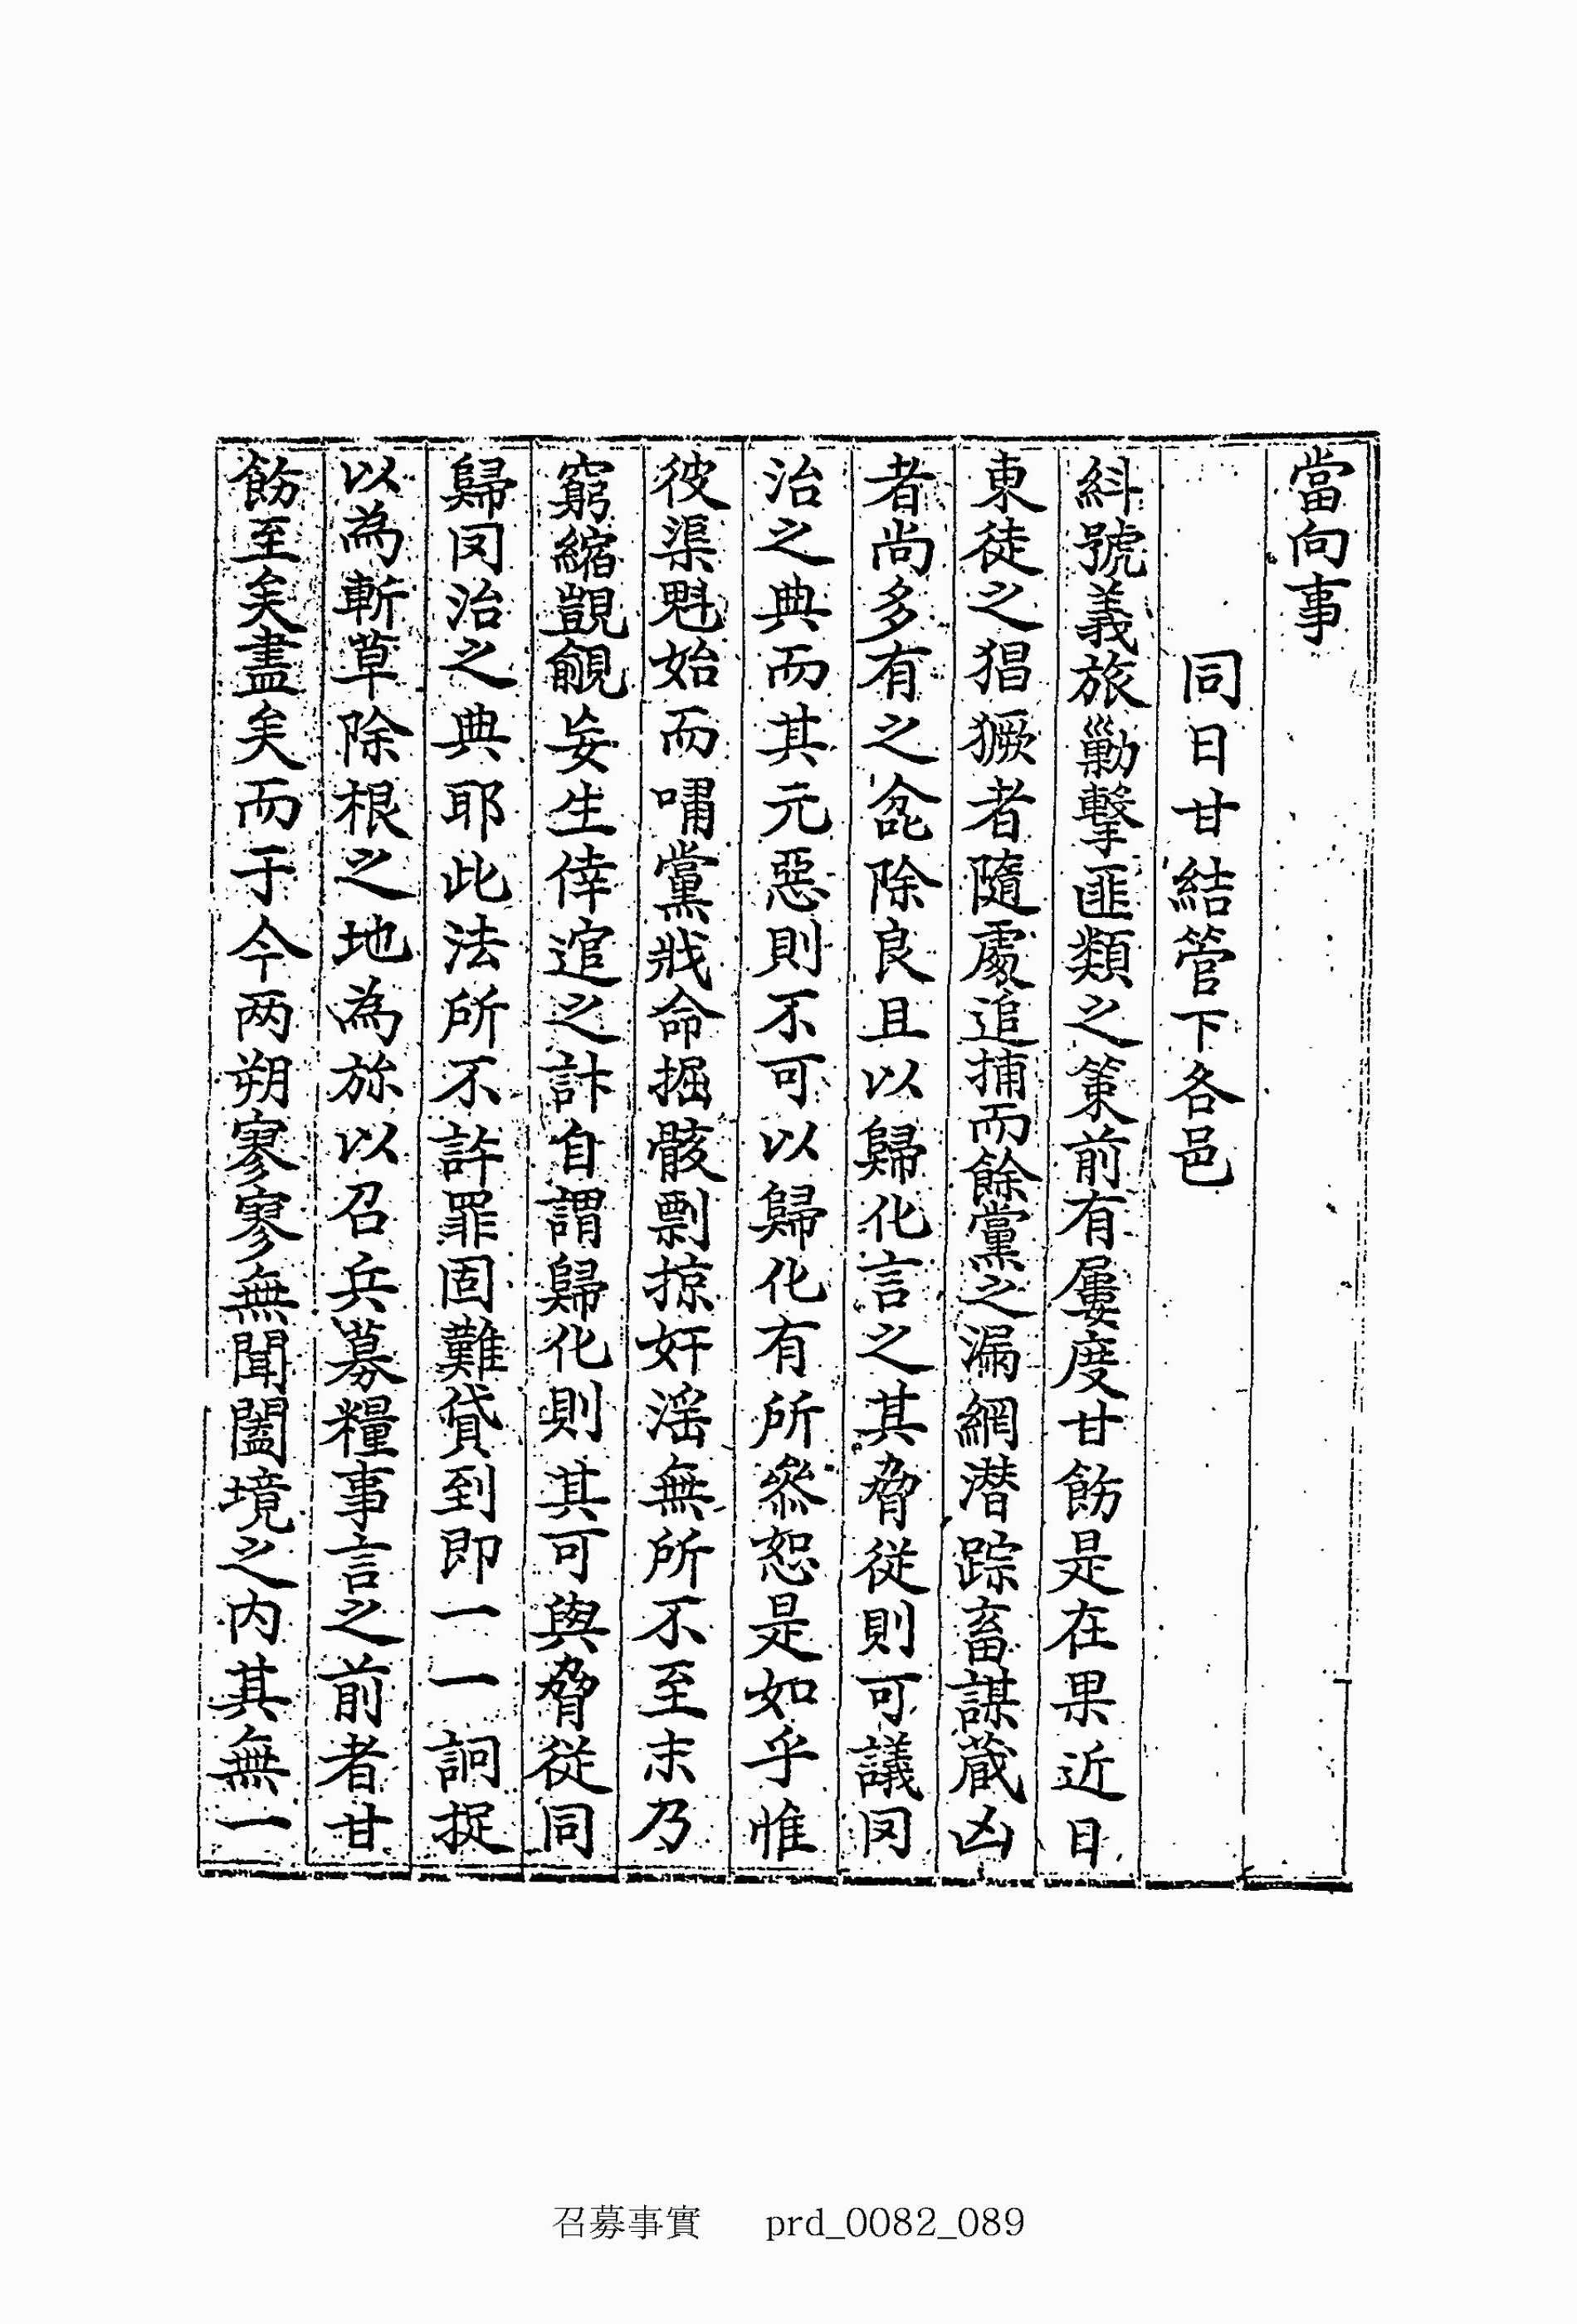 當向事
同日甘結管下各邑
糾號義旅勦擊匪類之策前有屢度甘飭是在果近日
東徒之猖獗者隨處追捕而餘黨之漏網潜踪畜謀蔵凶
者尚多有之兺除良且以歸化言之其脅從則可議罔
治之典而其元惡則不可以歸化有所叅恕是如乎惟
彼渠魁始而嘯黨戕命掘骸剽掠奸滛無所不至末乃
窮縮覬覦妄生倖逭之計自謂歸化則其可與脅從同
歸罔治之典耶此法所不許罪固難貸到即一一詗捉
以為斬草除根之地為旀以召兵募糧事言之前者甘
飭至矣盡矣而于今两朔寥寥無聞闔境之内其無一
召募事實 prd_0082_089